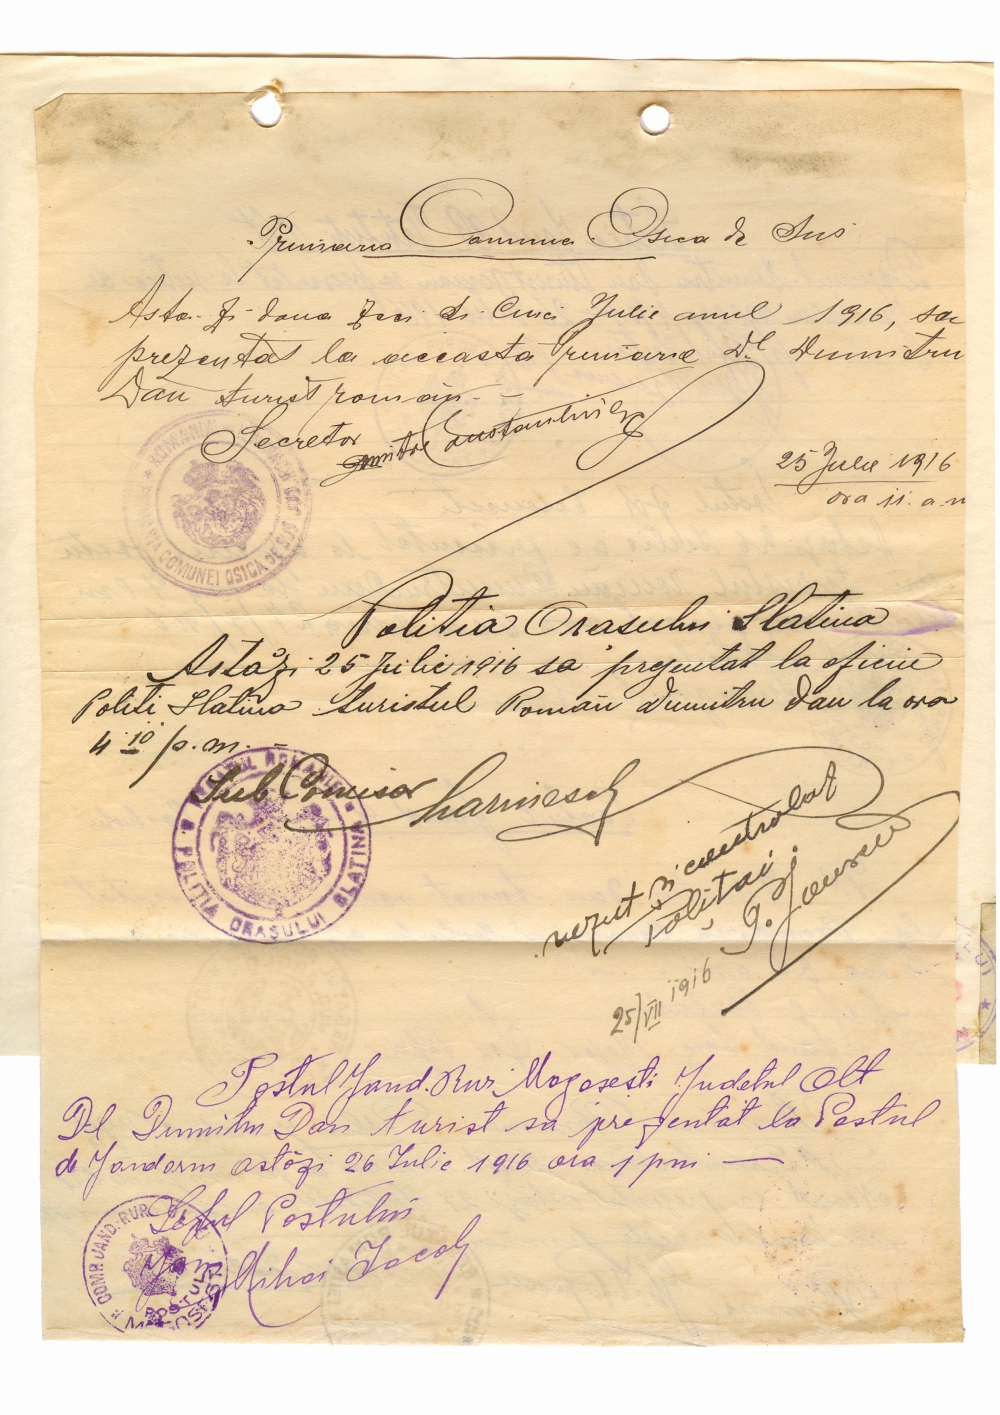 Primaria Comunei Osica de Sus
Astă-zi doua zeci și cinci Julie anul 1916, sa
prezentat la aceasta Primărie Dl. Dumitru
Dan turist român.—
Secretar Dumitru Constantinescu
25 Julie 1916
ora 11. a.m
COMUNEI OSICA DE SUS
Politia Orasului Slatina
Astăzi 25 Julie 1916 sa prezentat la oficiu
Politi Slatina turistul Român Dumitru Dan la ora
4 10 p.m. —
Sub Comisar
POLITIA ORASULUI SLATINA
vezut și controlat
Polițai.
G. Jonescu
25/VII 1916
Postul Jand. Rur. Mogosesti Judetul Olt
D-l Dumitru Dan turist sa prezentat la Postul
de Jandarm astăzi 26 Iulie 1916 ora 1 pm —
Șeful Postului
Mihai Iacob
COMP. JAND. RUR.
POSTUL
MOGOSESTI